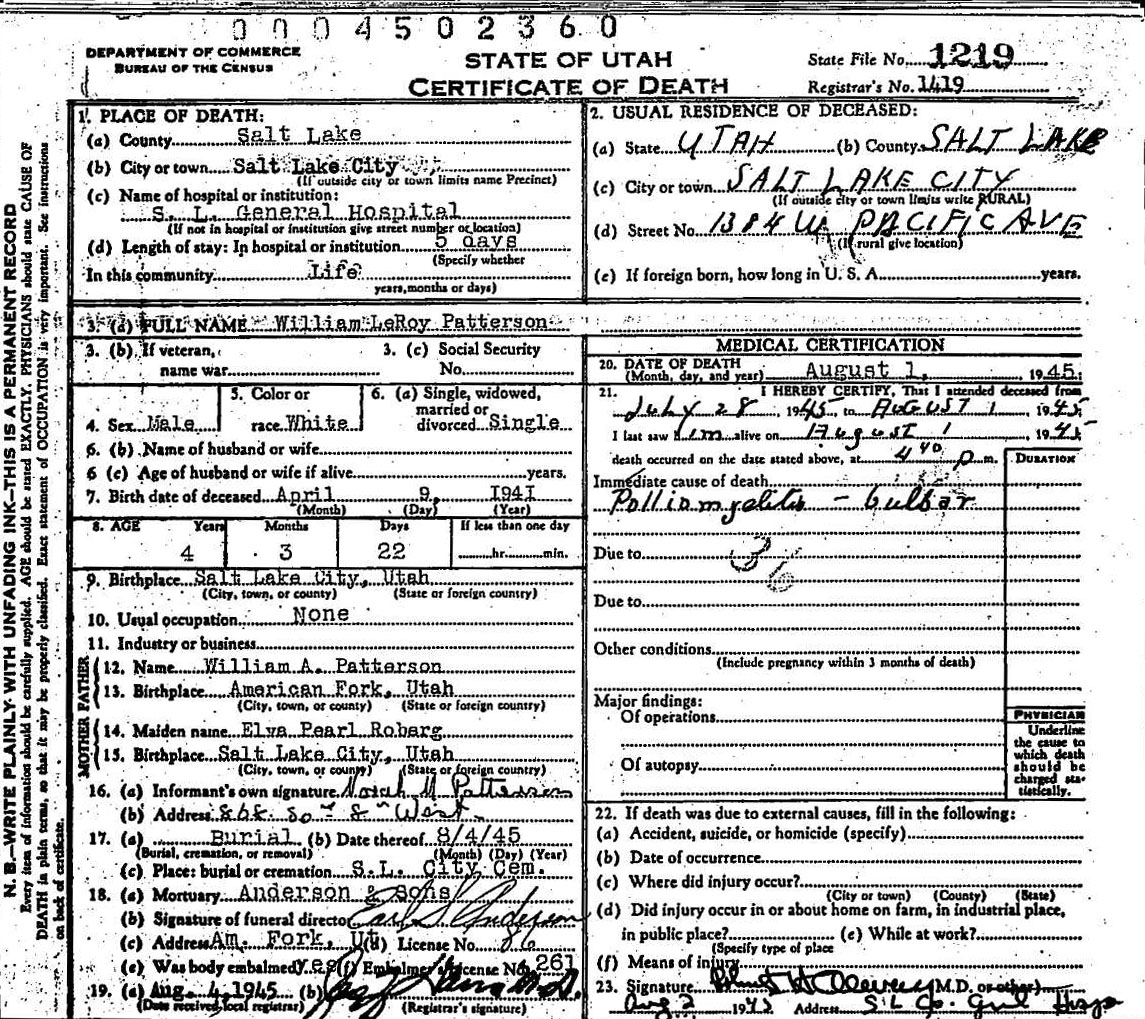 0 0 0 4 5 0 2 3 6 0
DEPARTMENT OF COMMERCE
BUREAU OF THE CENSUS
STATE OF UTAH
CERTIFICATE OF DEATH
State File No. 1219
Registrar's No. 1419
N. B.—WRITE PLAINLY WITH UNFADING INK—THIS IS A PERMANENT RECORD
Every item of information should be carefully supplied. AGE should be stated EXACTLY. PHYSICIANS should state CAUSE OF
DEATH in plain terms, so that it may be properly classified. Exact statement of OCCUPATION is very important. See instructions
on back of certificate.
1. PLACE OF DEATH:
(a) County Salt Lake
(b) City or town Salt Lake City
(If outside city or town limits name Precinct)
(c) Name of hospital or institution:
S. L. General Hospital
(If not in hospital or institution give street number or location)
(d) Length of stay: In hospital or institution 5 days
(Specify whether
In this community Life
years, months or days)
2. USUAL RESIDENCE OF DECEASED:
(a) State UTAH (b) County SALT LAKE
(c) City or town SALT LAKE CITY
(If outside city or town limits write RURAL)
(d) Street No. 1384 W PACIFIC AVE
(If rural give location)
(e) If foreign born, how long in U. S. A. years.
3. (a) FULL NAME William LeRoy Patterson
3. (b) If veteran,
name war
3. (c) Social Security
No.
4. Sex Male
5. Color or
race White
6. (a) Single, widowed,
married or
divorced Single
6. (b) Name of husband or wife
6 (c) Age of husband or wife if alive years.
7. Birth date of deceased April 9, 1941
(Month) (Day) (Year)
8. AGE Years Months Days If less than one day
4 3 22 hr. min.
9. Birthplace Salt Lake City, Utah
(City, town, or county) (State or foreign country)
10. Usual occupation None
11. Industry or business
FATHER
12. Name William A. Patterson
13. Birthplace American Fork, Utah
(City, town, or county) (State or foreign country)
MOTHER
14. Maiden name Elva Pearl Roberg
15. Birthplace Salt Lake City, Utah
(City, town, or county) (State or foreign country)
16. (a) Informant's own signature Norah M Patterson
(b) Address 868 So 8 West
17. (a) Burial (b) Date thereof 8/4/45
(Burial, cremation, or removal) (Month) (Day) (Year)
(c) Place: burial or cremation S.L. City Cem.
18. (a) Mortuary Anderson & Sons
(b) Signature of funeral director Earl S Anderson
(c) Address Am. Fork, Ut (d) License No. 86
(e) Was body embalmed? yes (f) Embalmer's License No. 261
19. (a) Aug. 4, 1945 (b)
(Date received local registrar) (Registrar's signature)
MEDICAL CERTIFICATION
20. DATE OF DEATH
(Month, day, and year) August 1, 1945
21. I HEREBY CERTIFY, That I attended deceased from
July 28, 1945, to August 1, 1945
I last saw him alive on August 1 1945
death occurred on the date stated above, at 4 40 p m.
DURATION
Immediate cause of death
Polliomyelitis - bulbar
Due to
36
Due to
Other conditions
(Include pregnancy within 3 months of death)
Major findings:
Of operations
Of autopsy
PHYSICIAN
Underline
the cause to
which death
should be
charged sta-
tistically.
22. If death was due to external causes, fill in the following:
(a) Accident, suicide, or homicide (specify)
(b) Date of occurrence
(c) Where did injury occur?
(City or town) (County) (State)
(d) Did injury occur in or about home on farm, in industrial place,
in public place? (e) While at work?
(Specify type of place
(f) Means of injury
23. Signature (M.D. or other)
Aug 2 1945 Address S L Co. Genl Hosp